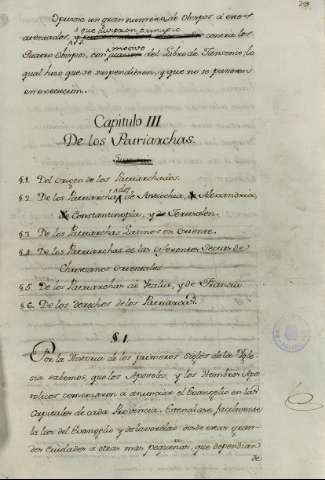 opuso un gran numero de Obispos á estos
que dieron principio
atentados, contra los
Quatro Obispos, con motivo del Libro de Jansenio, lo
qual hizo que se suspendiesen, y que no se pusiesen
en execucion.
Capitulo III
De los Patriarchas.
§.1. Del origen de los Patriarchados.
§.2. De los Patriarchados de Antiochia, Alexandria,
Constantinopla, y Jerusalen.
§.3. De los Patriarchas Latinos en Oriente.
§.4. De los Patriarchas de las diferentes Sectas de
Christianos Orientales
§.5. De los Patriarchas de Ytalia, y de Francia
§.6. De los derechos de los Patriarchas.
§ 1.
Por la Historia de los primeros Siglos de la Ygle-
sia sabemos, que los Apostoles, y los Hombres Apos-
tolicos comenzaron a anunciar el Evangelio en las
Capitales de cada Provincia. Estendiase facilmente
la luz del Evangelio y de la verdad desde estas gran-
des Ciudades a otras mas pequeñas, que dependian
de